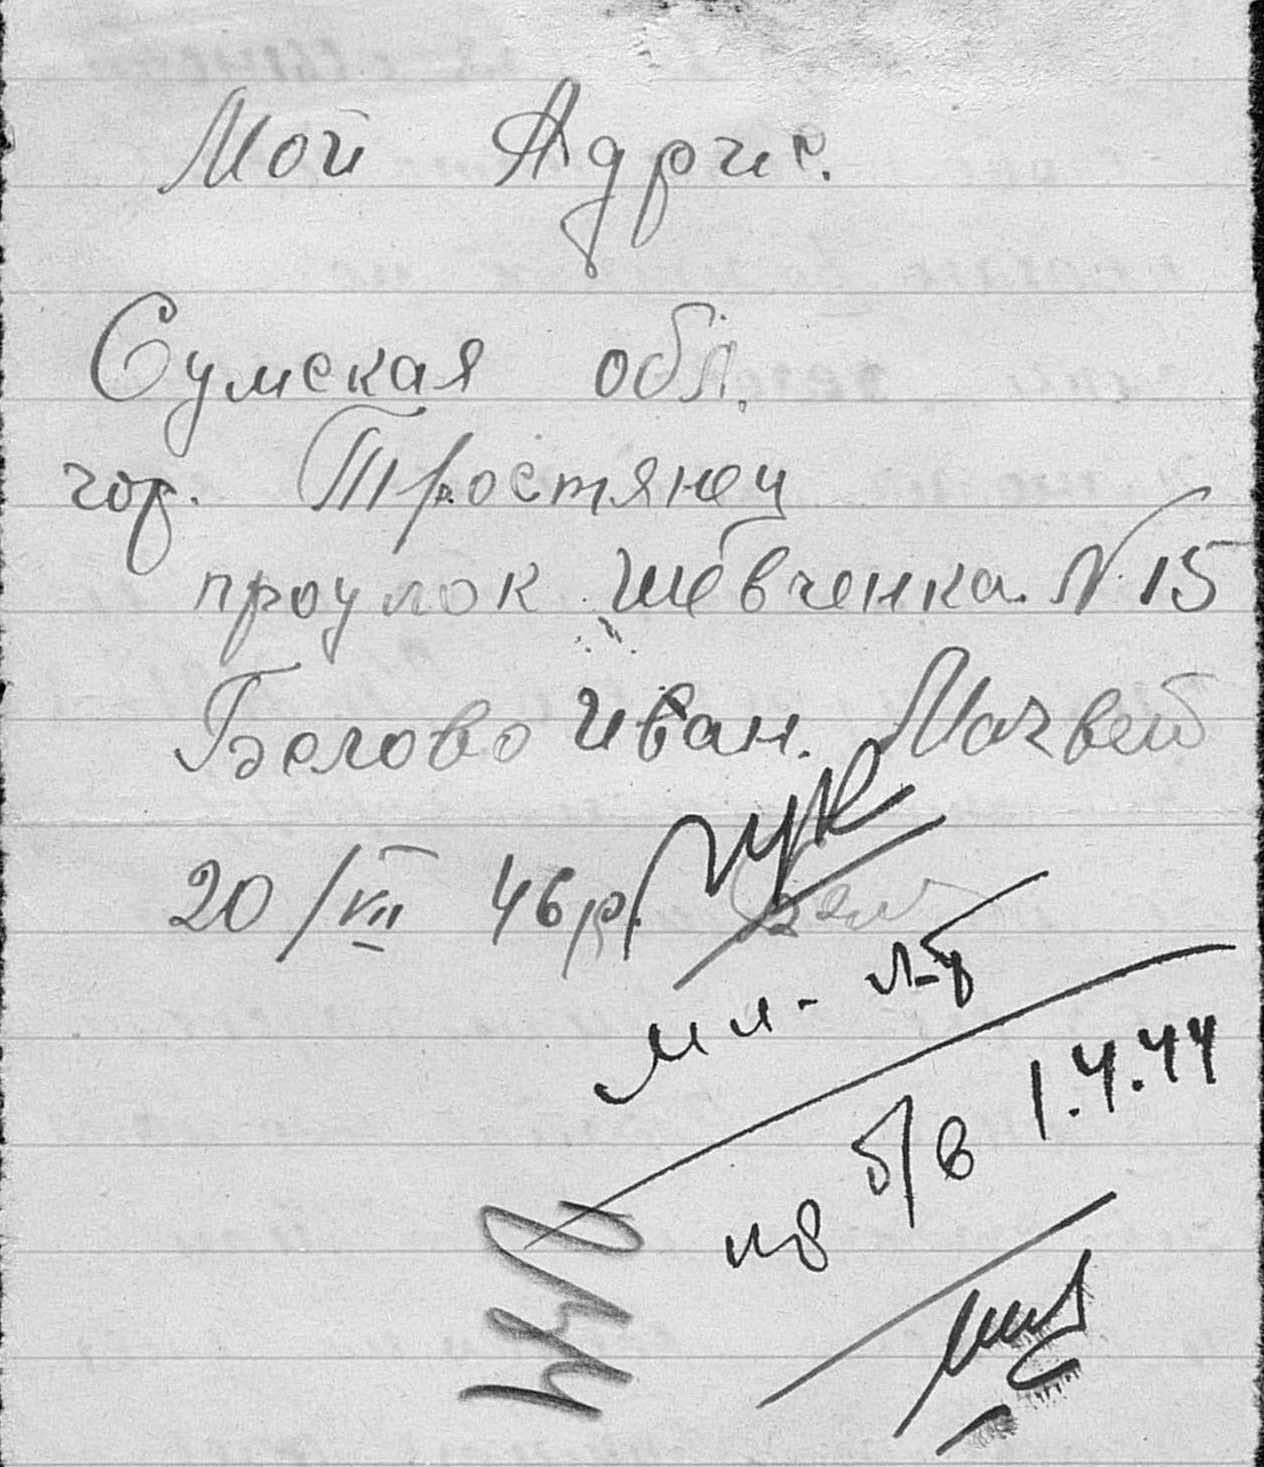 Мой Адрис.
Сумская обл.
гор. Тростянец
проулок Шевченка. N 15
Белово Иван. Матвей
20/VII 46р.
мл. л-т
б/в 1.4.44